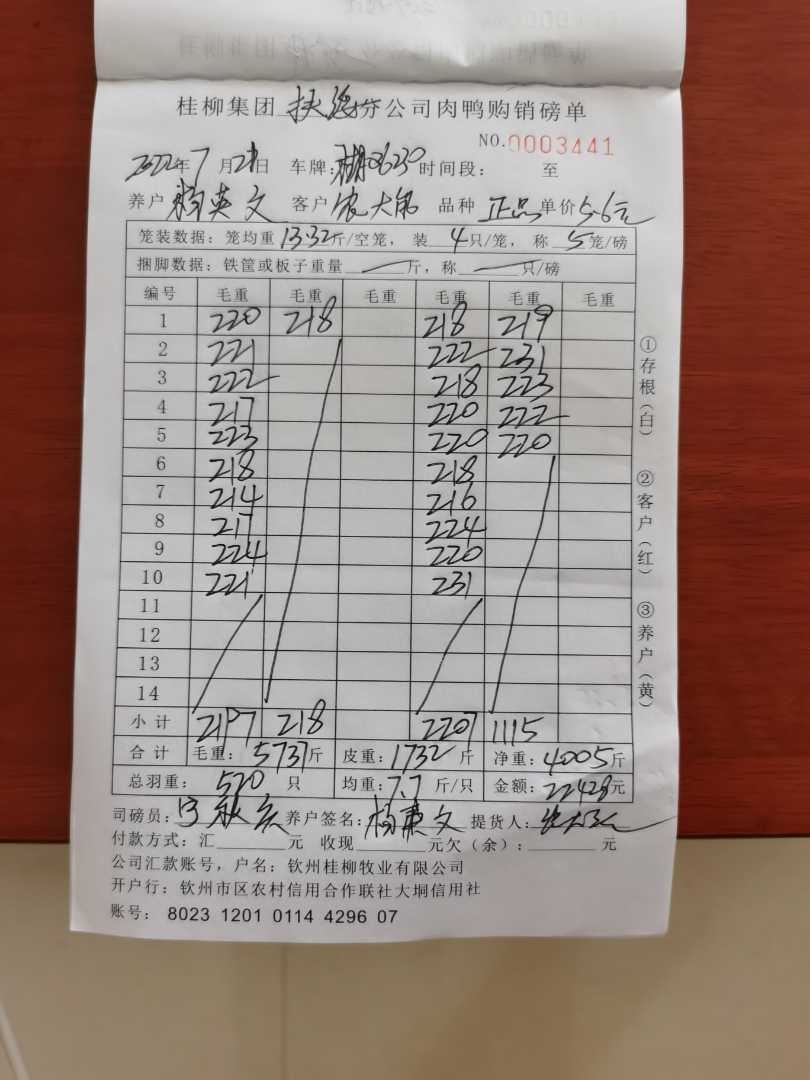 桂柳集团 扶绥分公司肉鸭购销磅单
NO.0003441
2022年7月21日 车牌: 06230 时间段: 至
养户 杨英文 客户 农大 品种 正品 单价 5.6元
笼装数据: 笼均重 13.32斤/空笼, 装 4只/笼, 称 5笼/磅
捆脚数据: 铁筐或板子重量 一 斤, 称 一 只/磅
编号 毛重 毛重 毛重 毛重 毛重 毛重
1 220 218 218 219
2 221 222 231
3 222 218 223
4 217 220 222
5 223 220 220
6 218 218
7 214 216
8 217 224
9 224 220
10 221 231
11
12
13
14
小计 2197 218 2207 1115
合计 毛重: 5737斤 皮重: 1732斤 净重: 4005斤
总羽重: 520 只 均重: 7.7 斤/只 金额: 22428元
司磅员: 养户签名: 杨英文 提货人:
付款方式: 汇 元 收现 元欠(余): 元
公司汇款账号, 户名: 钦州桂柳牧业有限公司
开户行: 钦州市区农村信用合作联社大垌信用社
账号: 8023 1201 0114 4296 07
①存根(白)
②客户(红)
③养户(黄)